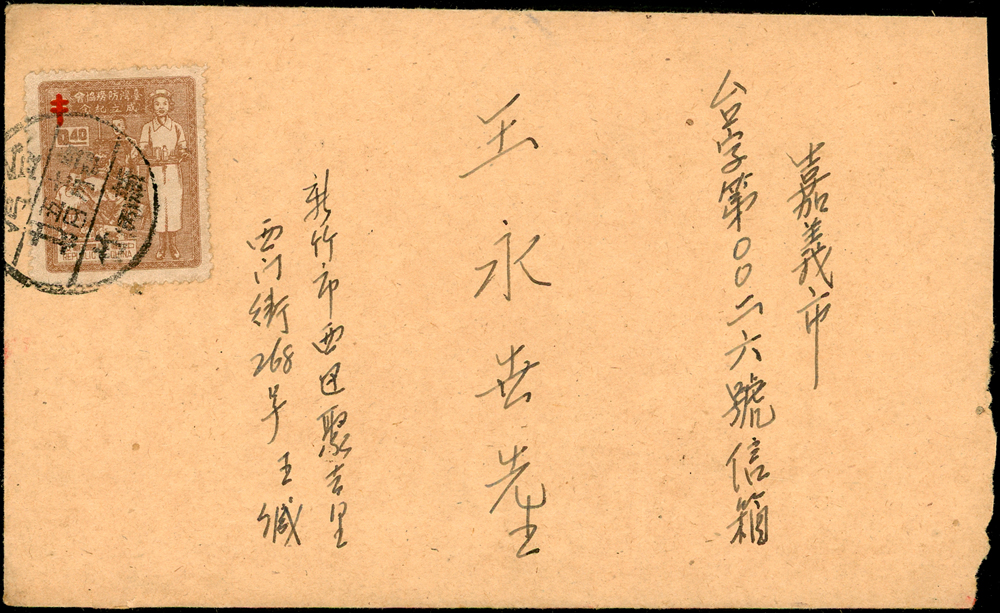 嘉義市
台字第〇〇二六號信箱
王永世先生
新竹市西区聚吉里
西门街268号 王緘
臺灣防癆協會
成立紀念
0.40